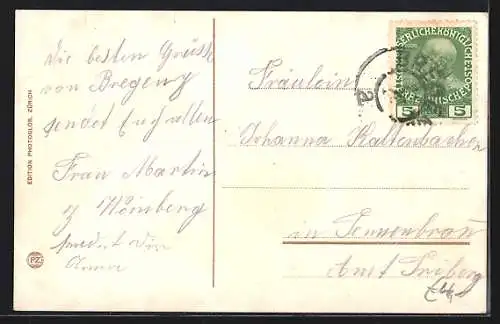 Die besten Grüsse
von Bregenz
sendet Euch allen
Frau Martin
z Weinberg
Anna
EDITION PHOTOGLOB, ZÜRICH
PZ
Fräulein
Johanna Kaltenbacher
in Tennenbronn
Amt Triberg
KAISERLICHE KÖNIGLICHE
ÖSTERREICHISCHE POST
5 5